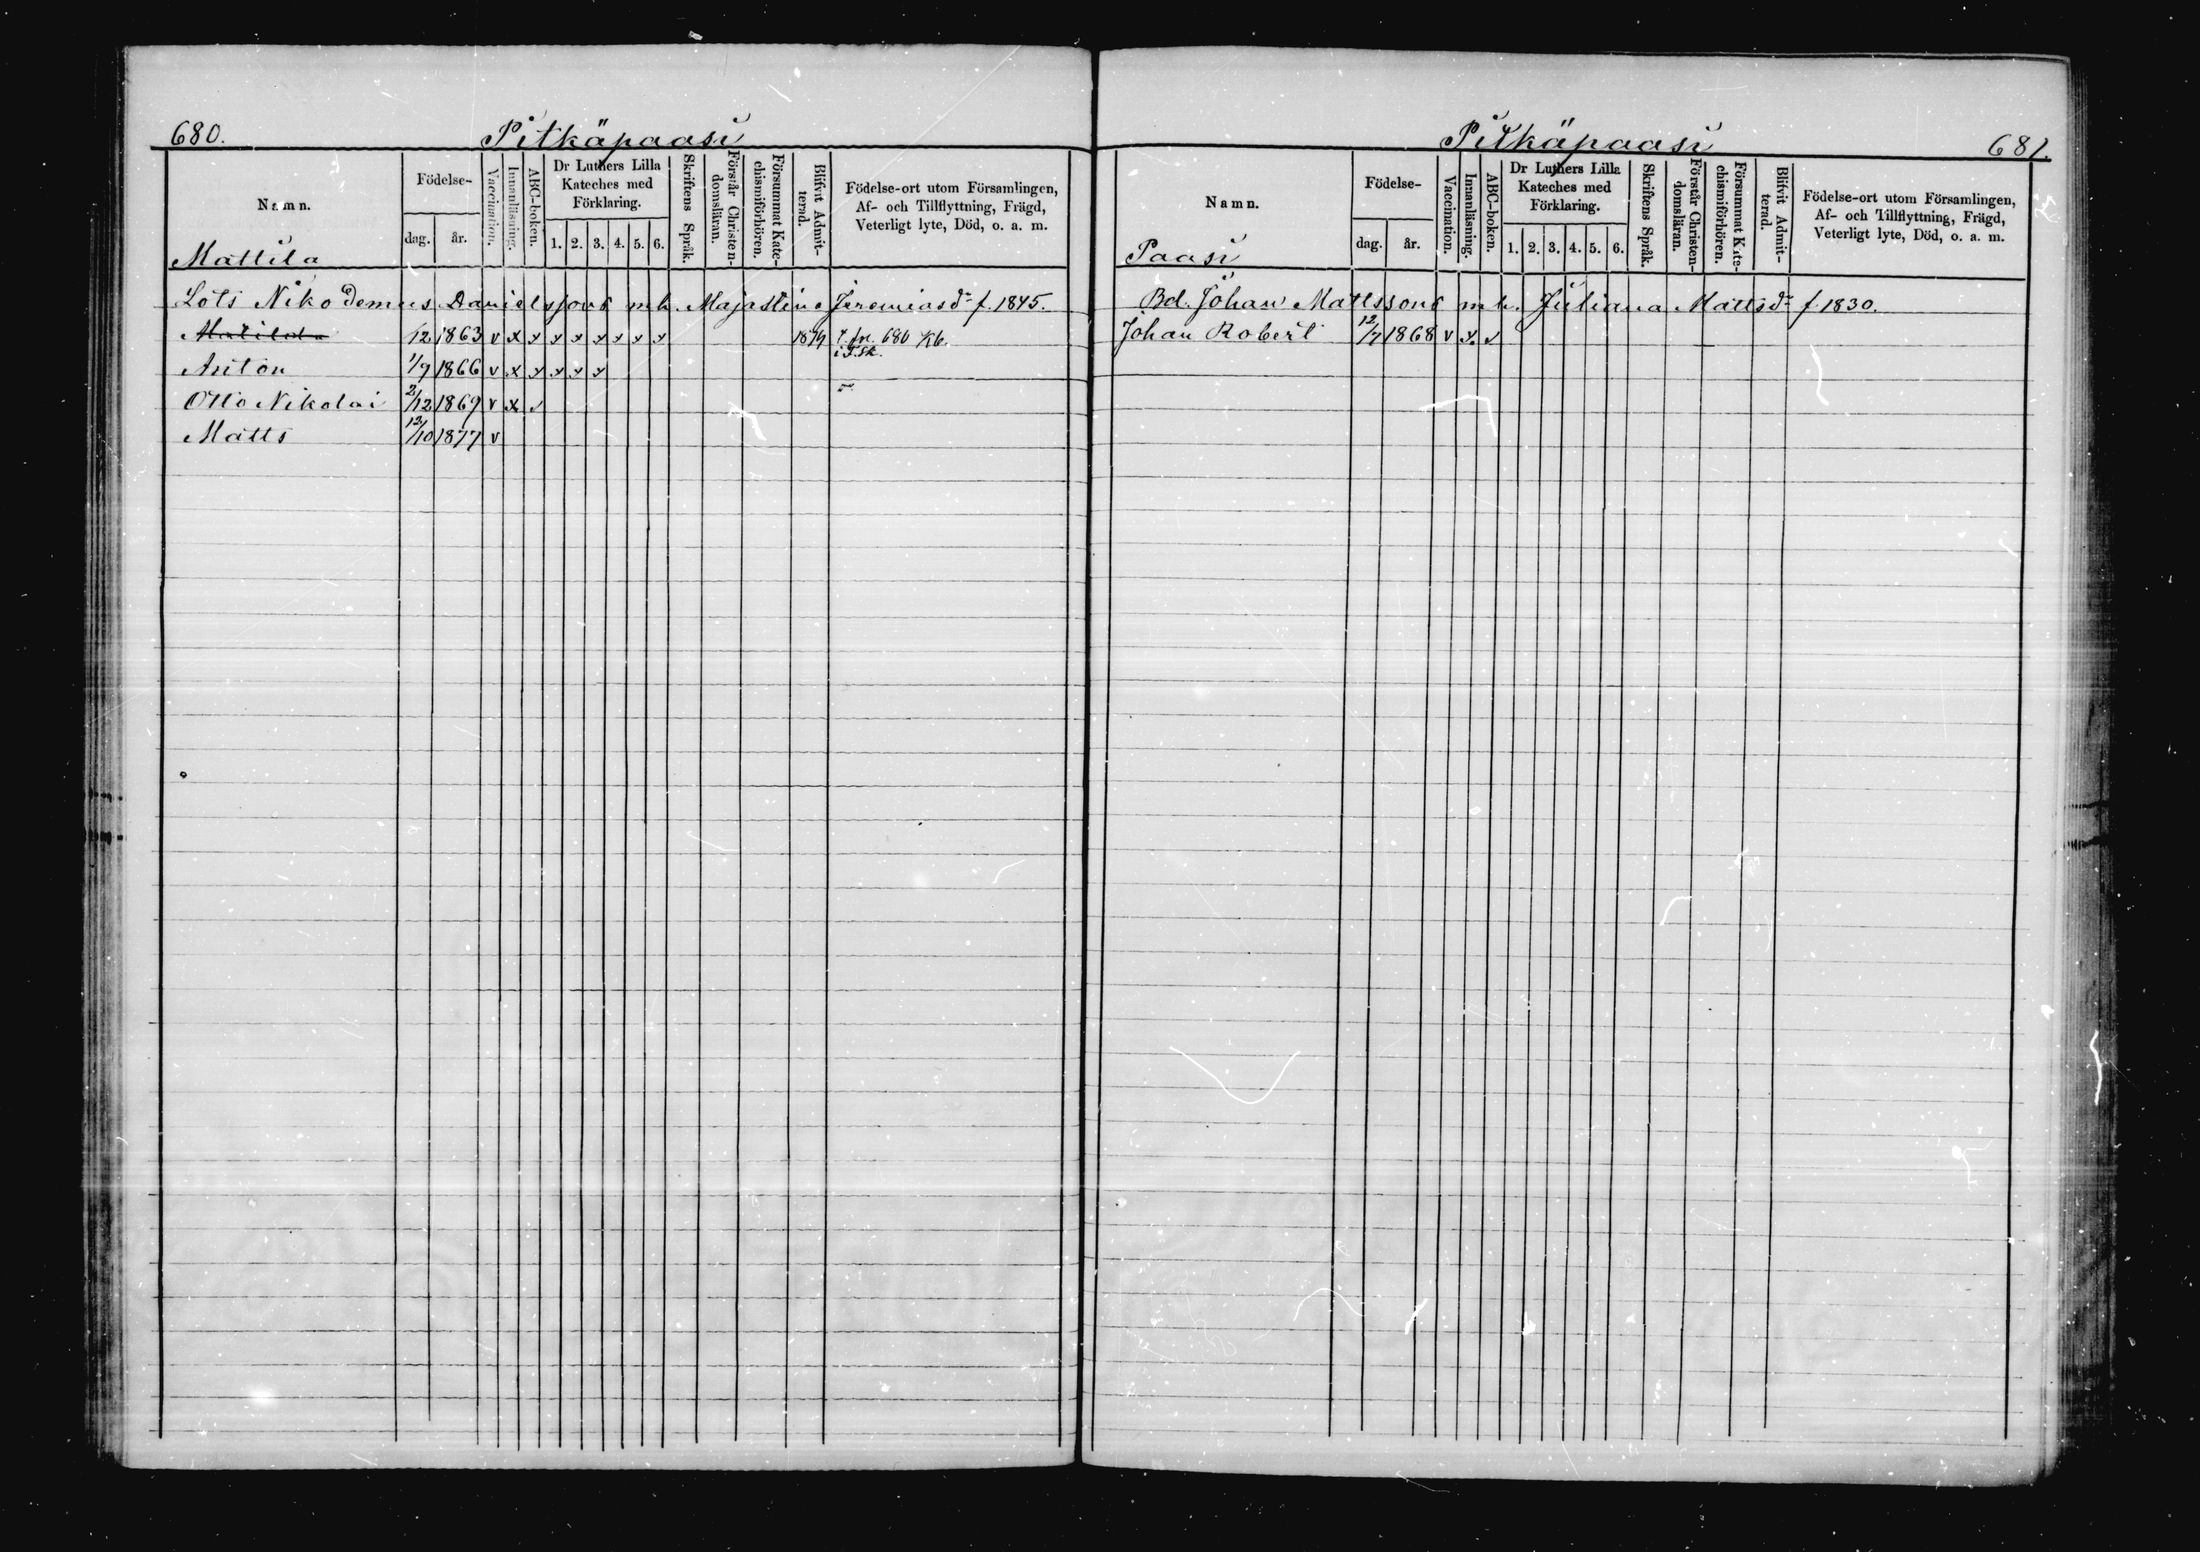 680.
Pitkäpaasi
Namn.
Födelse-
dag.
år.
Vaccination.
Innanläsning.
ABC-boken.
Dr Luthers Lilla
Kateches med
Förklaring.
1. 2. 3. 4. 5. 6.
Skriftens Språk.
Förstår Christen-
domsläran.
Försummat Kate-
chismiförhören.
Blifvit Admit-
terad.
Födelse-ort utom Församlingen,
Af- och Tillflyttning, Frägd,
Veterligt lyte, Död, o. a. m.
Mattila
Lots Nikodemus Danielssons m h. Maja Stina Jeremiasdr f. 1845.
Matilda 12 1863 v x x x x x x x x 1879 fol. 680 Kb.
Anton 1/9 1866 v x x x x x
Otto Nikolai 2/12 1869 v x
Matts 12/10 1877 v
Pitkäpaasi
681.
Namn.
Födelse-
dag.
år.
Vaccination.
Innanläsning.
ABC-boken.
Dr Luthers Lilla
Kateches med
Förklaring.
1. 2. 3. 4. 5. 6.
Skriftens Språk.
Förstår Christen-
domsläran.
Försummat Kate-
chismiförhören.
Blifvit Admit-
terad.
Födelse-ort utom Församlingen,
Af- och Tillflyttning, Frägd,
Veterligt lyte, Död, o. a. m.
Paasi
Bd. Johan Mattssons m h. Juliana Mattsdr f. 1830.
Johan Robert 12/7 1868 v x